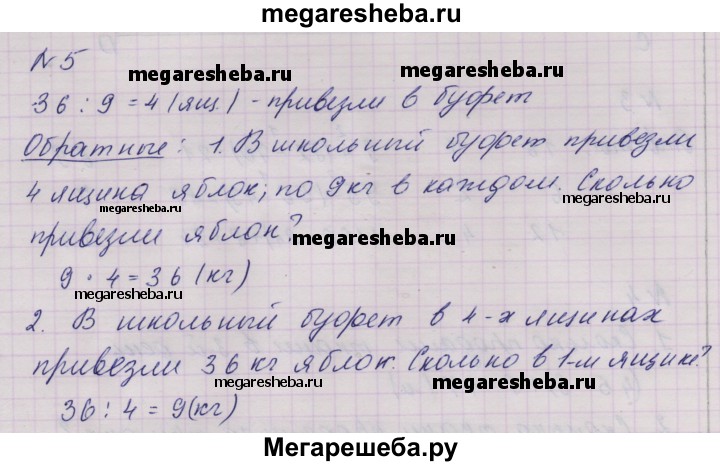 megaresheba.ru
N 5
megaresheba.ru
36 : 9 = 4 (ящ.) - привезли в буфет
Обратные: 1. В школьный буфет привезли
megaresheba.ru
4 ящика яблок, по 9 кг в каждом. Сколько
megaresheba.ru
megaresheba.ru
привезли яблок?
megaresheba.ru
9 · 4 = 36 (кг)
megaresheba.ru
2. В школьный буфет в 4-х ящиках
привезли 36 кг яблок. Сколько в 1-м ящике?
megaresheba.ru
36 : 4 = 9 (кг)
Мегарешеба.ру